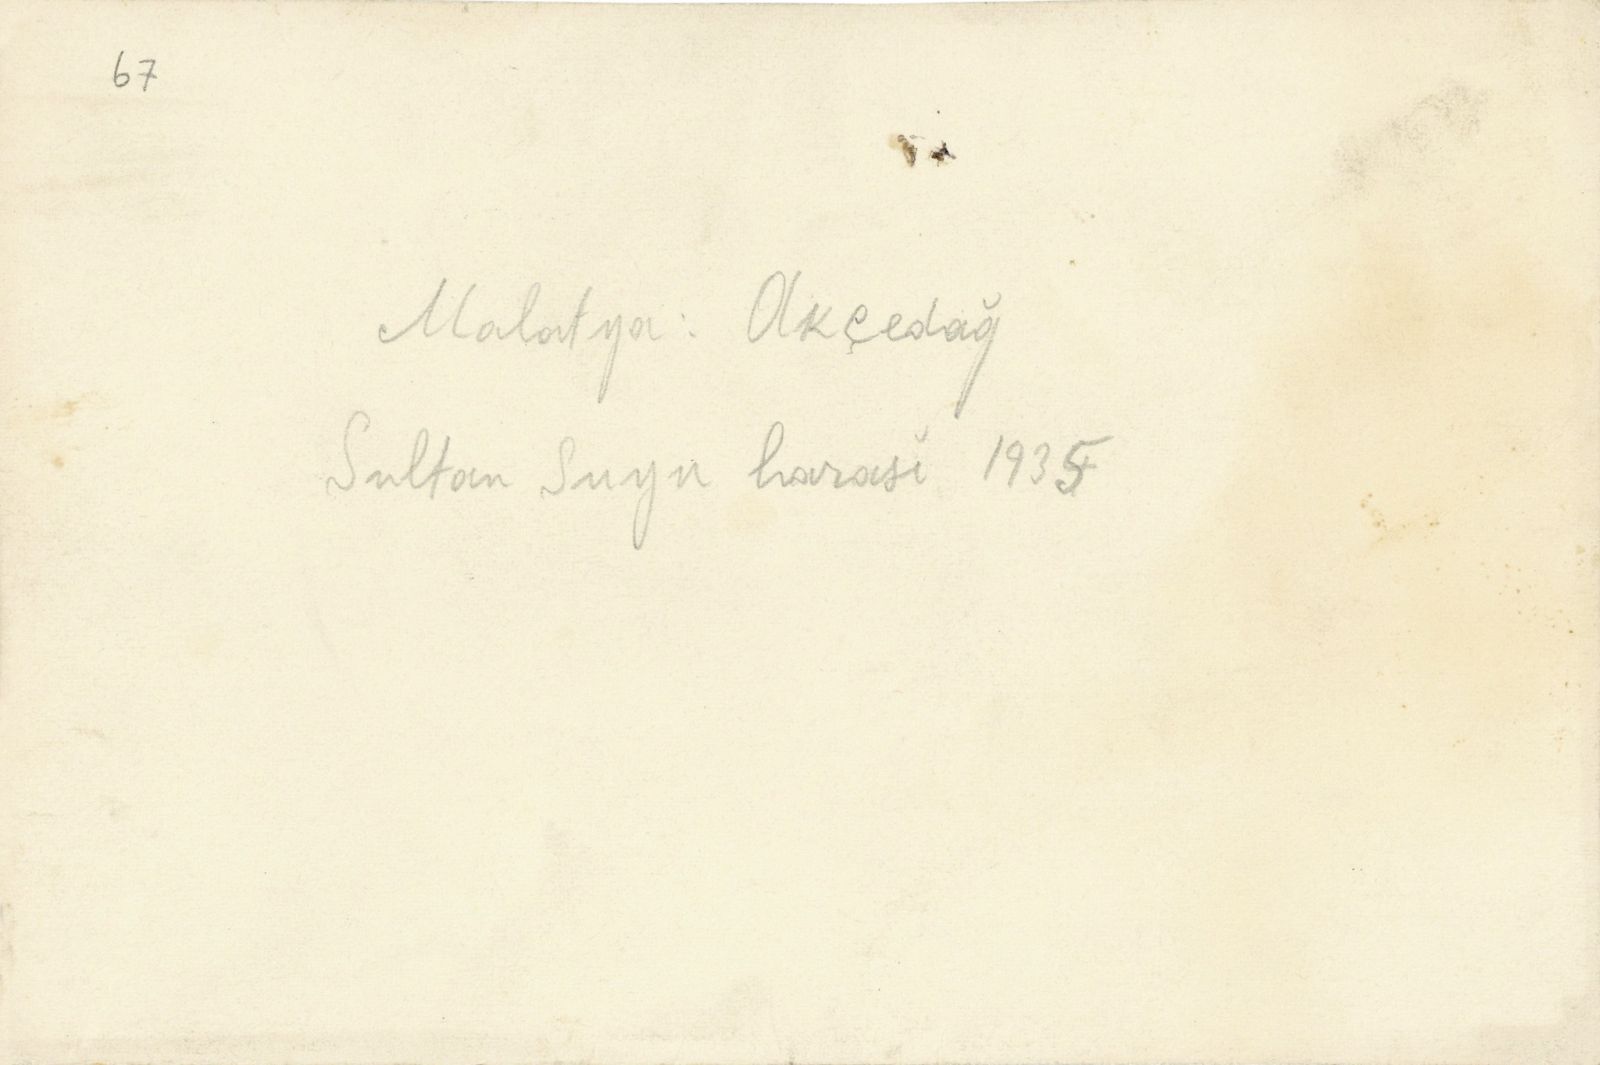 67
Malatya: Akçedağ
Sultan Suyu harasĭ 1935